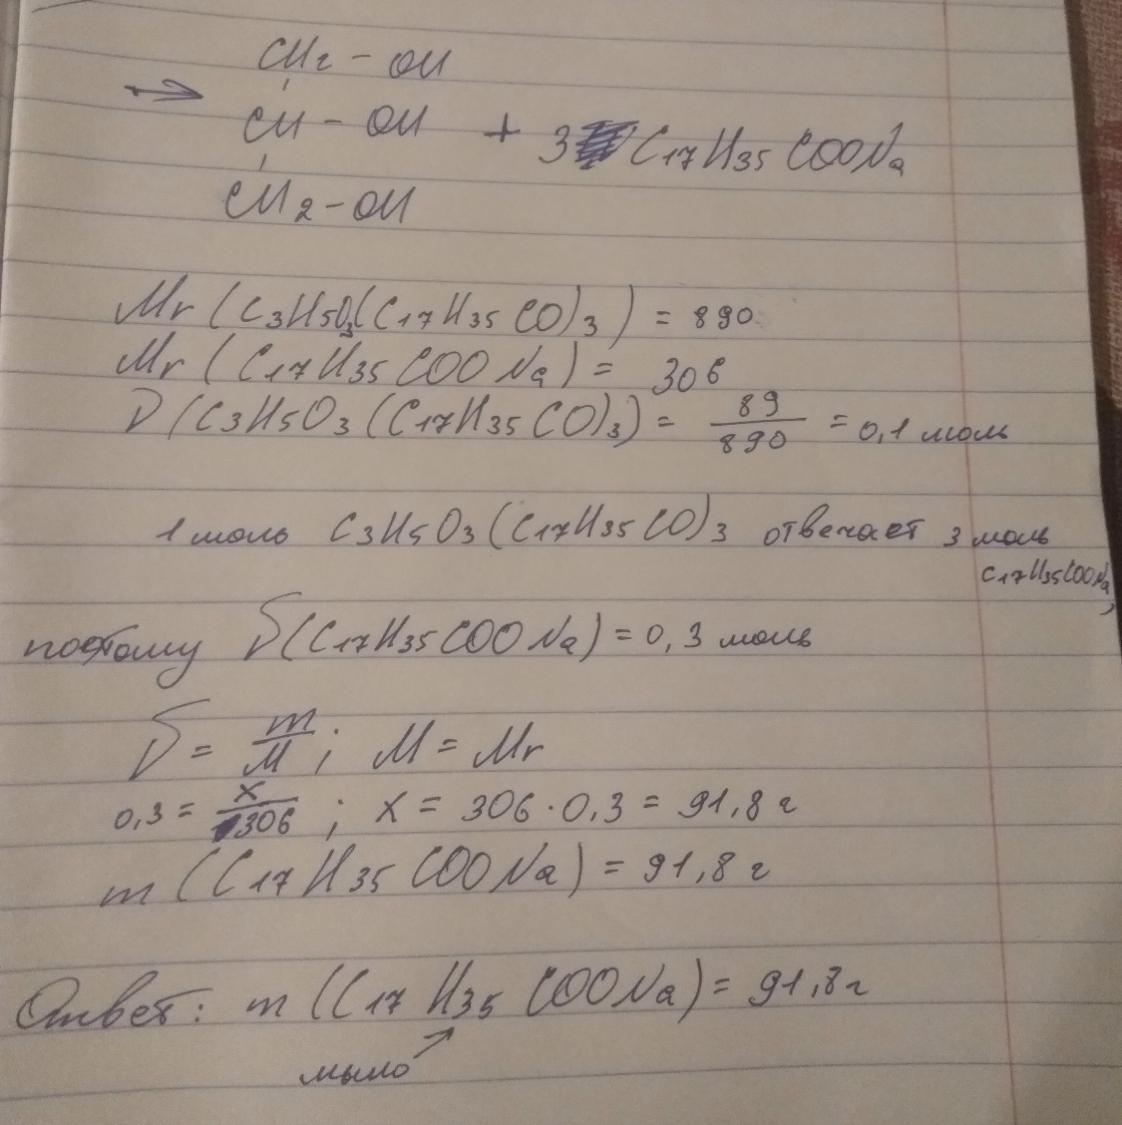 → CH2 - OH
CH - OH + 3 C17H35COONa
CH2 - OH
Mr (C3H5O3(C17H35CO)3) = 890
Mr (C17H35COONa) = 306
ν (C3H5O3(C17H35CO)3) = 89/890 = 0,1 моль
1 моль C3H5O3(C17H35CO)3 отвечает 3 моль
C17H35COONa,
поэтому ν(C17H35COONa) = 0,3 моль
ν = m/M ; M = Mr
0,3 = x/306 ; x = 306 · 0,3 = 91,8 г
m (C17H35COONa) = 91,8 г
Ответ: m (C17H35COONa) = 91,8 г
мыло ↗